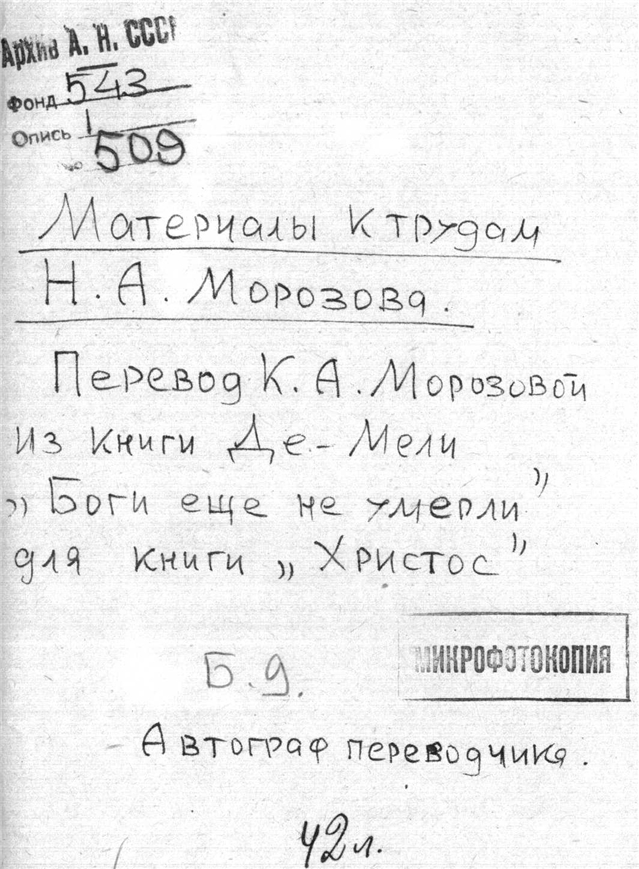 Архив А. Н. СССР
Фонд 543
Опись 1
№ 509
Материалы к трудам
Н. А. Морозова.
Перевод К. А. Морозовой
из книги Де-Мели
„Боги еще не умерли”
для книги „Христос”
МИКРОФОТОКОПИЯ
Б.д.
Автограф переводчика.
42 л.